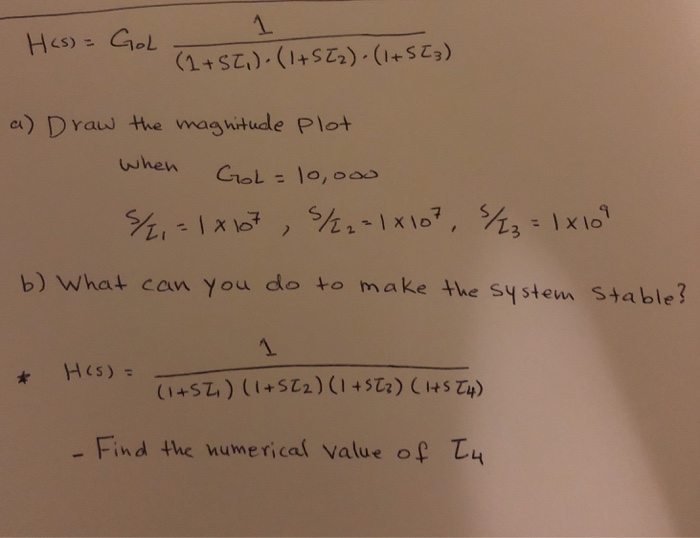 H(s) = GOL 1 / (1+Sτ1)·(1+Sτ2)·(1+Sτ3)
a) Draw the magnitude plot
when GOL = 10,000
S/τ1 = 1 x 10^7 , S/τ2 = 1 x 10^7 , S/τ3 = 1 x 10^9
b) What can you do to make the system stable?
* H(s) = 1 / (1+Sτ1)(1+Sτ2)(1+Sτ3)(1+Sτ4)
- Find the numerical value of τ4